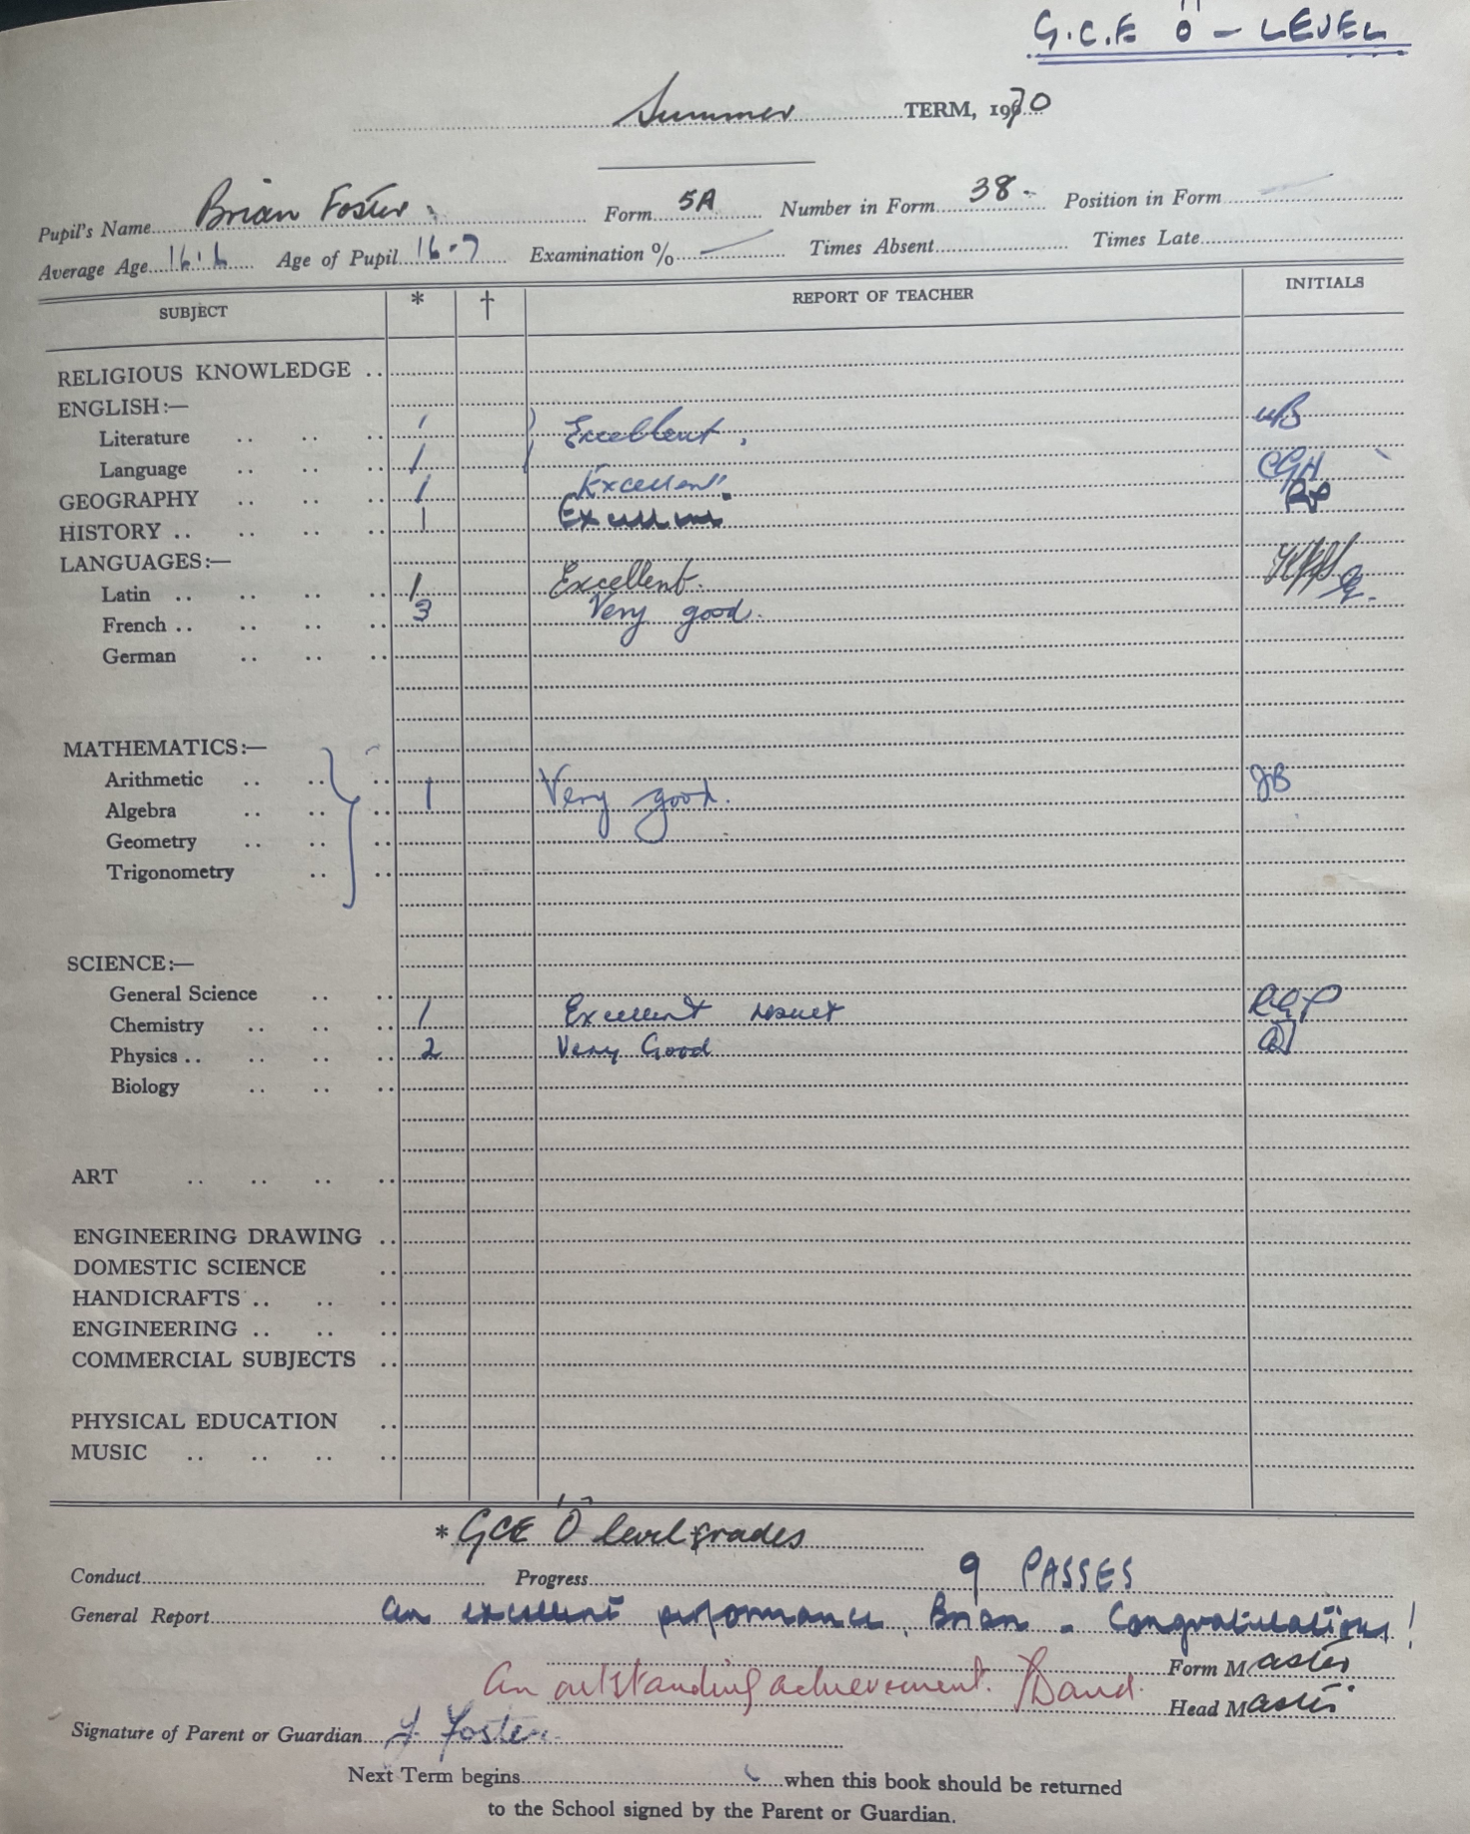 G.C.E 'O' - LEVEL
Summer TERM, 1970
Pupil's Name Brian Foster. Form 5A Number in Form 38 - Position in Form
Average Age 16.6 Age of Pupil 16-7 Examination % Times Absent Times Late
SUBJECT * † REPORT OF TEACHER INITIALS
RELIGIOUS KNOWLEDGE
ENGLISH:—
Literature 1 Excellent. WB
Language 1
GEOGRAPHY 1 Excellent. CGH
HISTORY 1 Excellent RP
LANGUAGES:—
Latin 1 Excellent.
French 3 Very good.
German
MATHEMATICS:—
Arithmetic 1 Very good. JB
Algebra
Geometry
Trigonometry
SCIENCE:—
General Science
Chemistry 1 Excellent result RGP
Physics 2 Very Good
Biology
ART
ENGINEERING DRAWING
DOMESTIC SCIENCE
HANDICRAFTS
ENGINEERING
COMMERCIAL SUBJECTS
PHYSICAL EDUCATION
MUSIC
* GCE 'O' level grades
Conduct Progress 9 PASSES
General Report An excellent performance, Brian - Congratulations!
Form Master
An outstanding achievement.
Head Master
Signature of Parent or Guardian Foster
Next Term begins when this book should be returned
to the School signed by the Parent or Guardian.